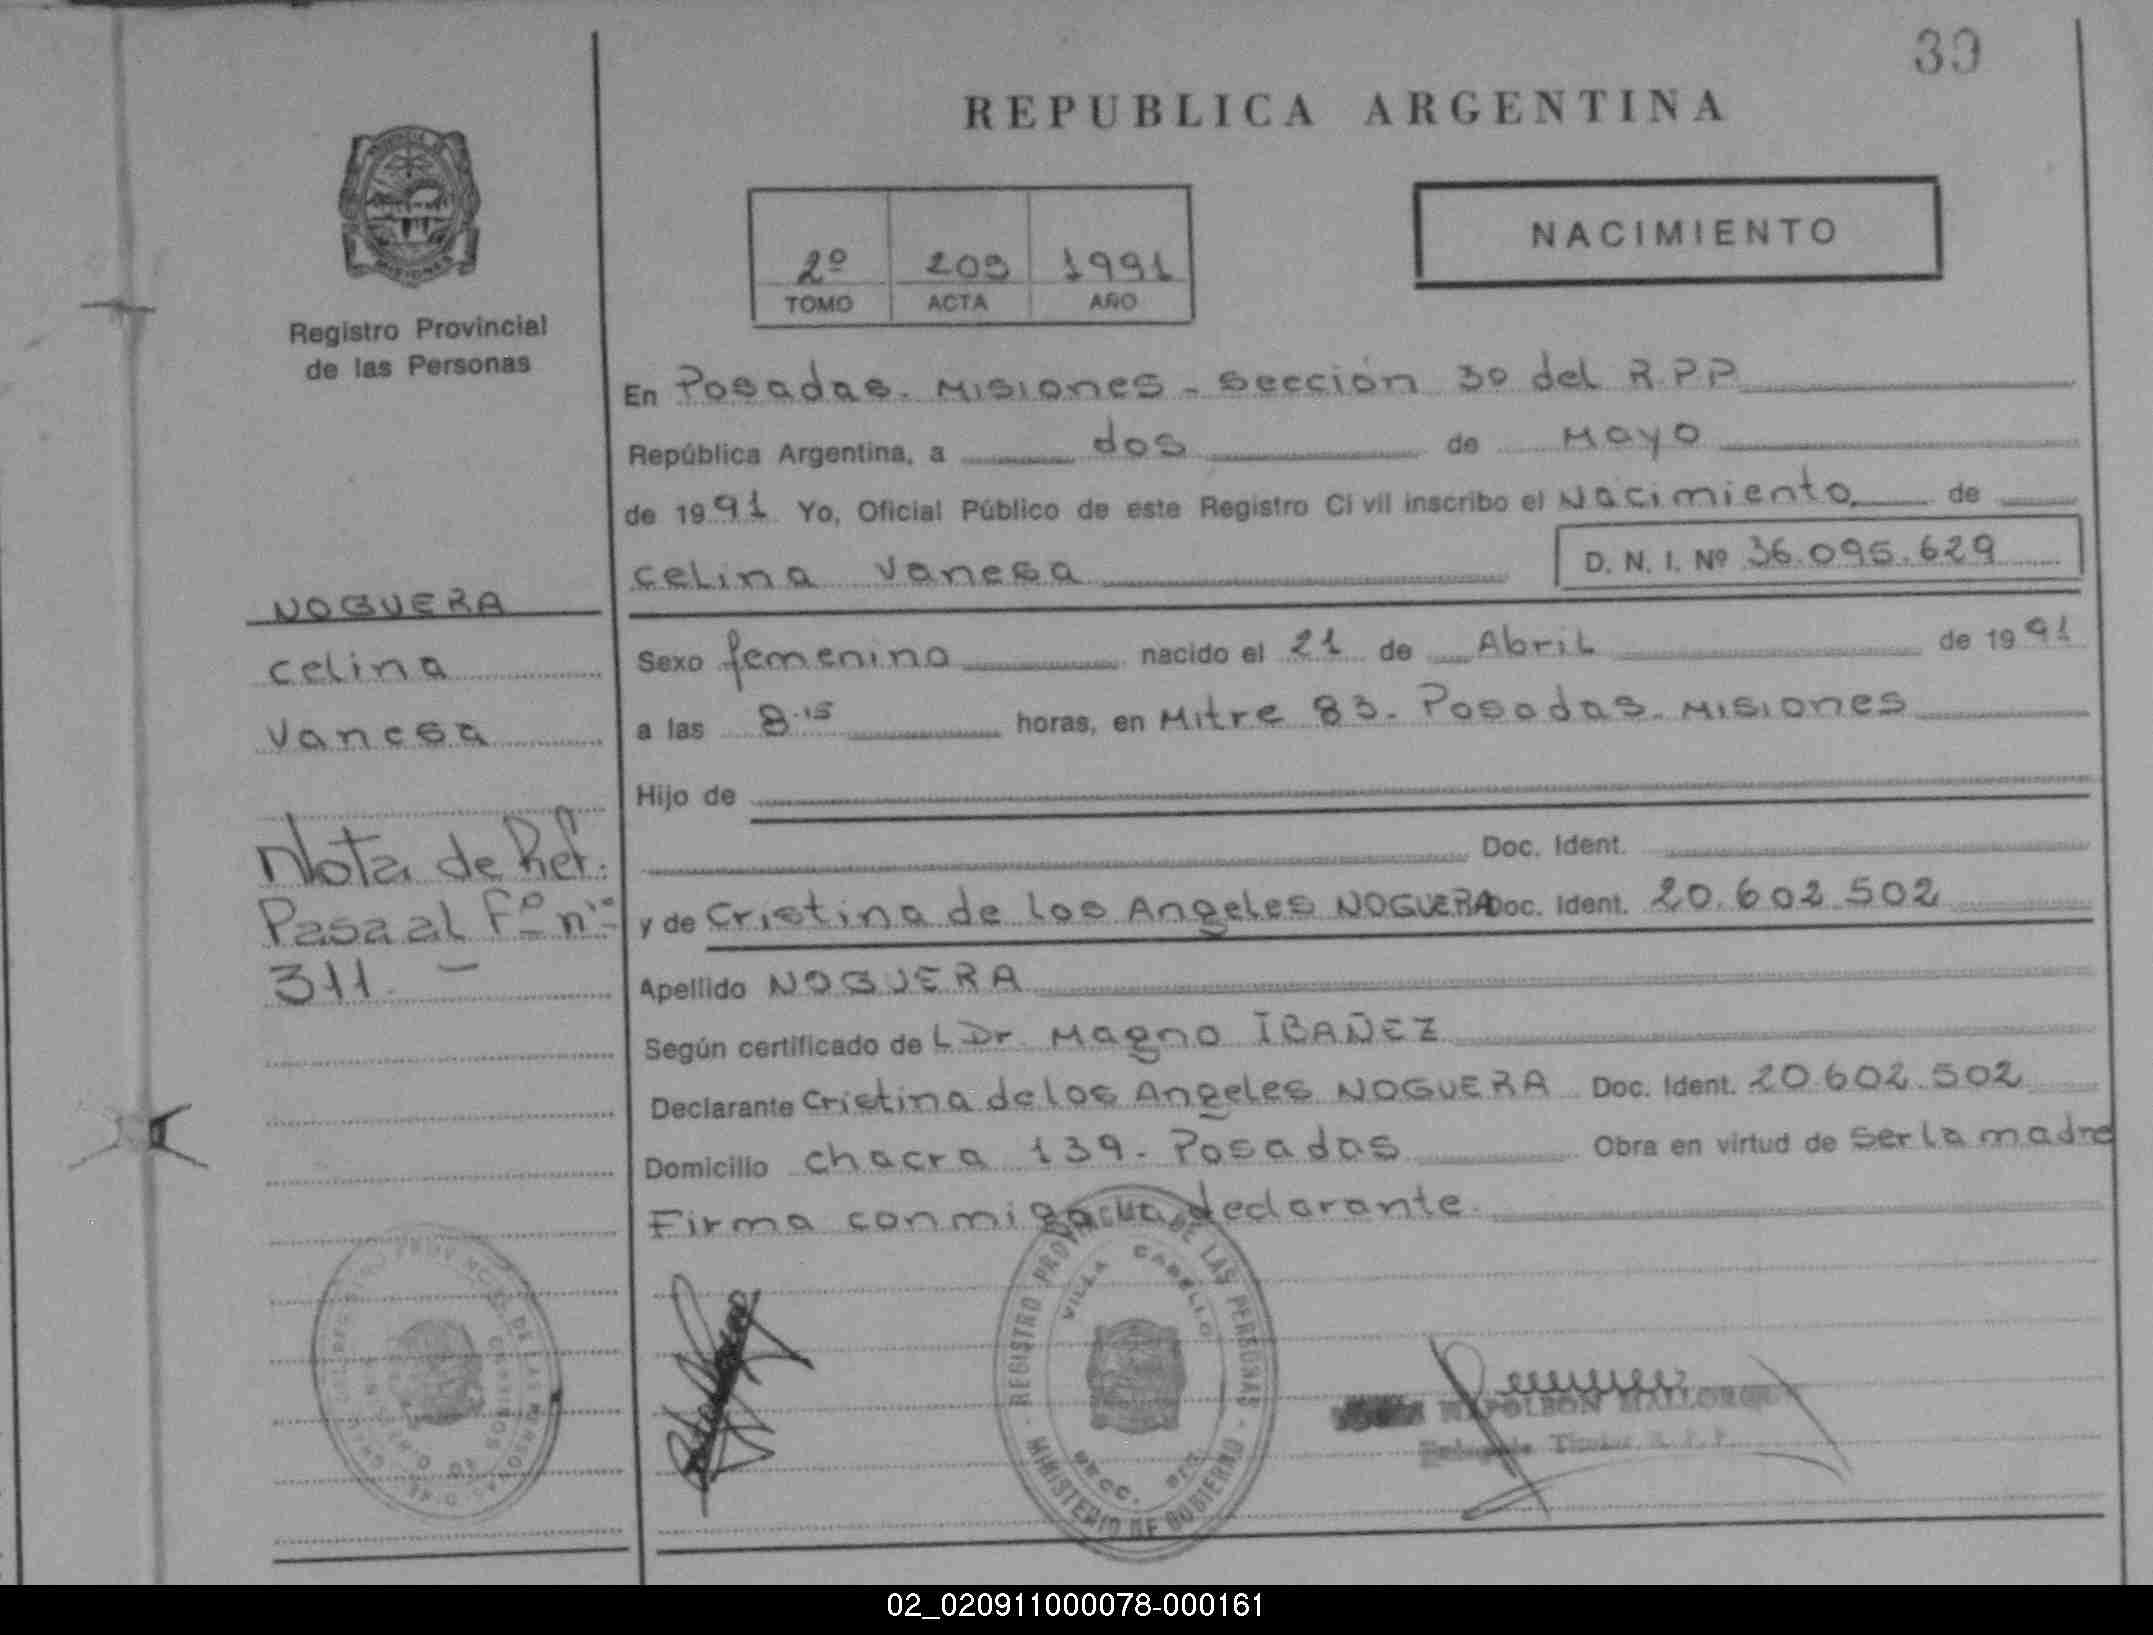 39
REPUBLICA ARGENTINA
NACIMIENTO
2º 209 1991
TOMO ACTA AÑO
Registro Provincial
de las Personas
En Posadas. Misiones - sección 3º del R.P.P
República Argentina, a dos de Mayo
de 1991 Yo, Oficial Público de este Registro Civil inscribo el Nacimiento de
celina vanesa D. N. I. Nº 36.095.629
NOGUERA
celina
vanesa
Sexo femenino nacido el 21 de Abril de 1991
a las 8.15 horas, en Mitre 83. Posadas. Misiones
Hijo de
Doc. Ident.
y de Cristina de los Angeles NOGUERA Doc. Ident. 20.602.502
Apellido NOGUERA
Según certificado de L Dr. Magno IBAÑEZ
Declarante Cristina de los Angeles NOGUERA Doc. Ident. 20.602.502
Domicilio chacra 139. Posadas Obra en virtud de ser la madre
Firma conmigo la declarante.
Nota de Ref.
Pasa al Fº nº
311. -
REGISTRO PROVINCIAL DE LAS PERSONAS
VILLA CABELLO
MINISTERIO DE GOBIERNO
NAPOLEON MALLORQUIN
Titular R. P. P.
02_020911000078-000161